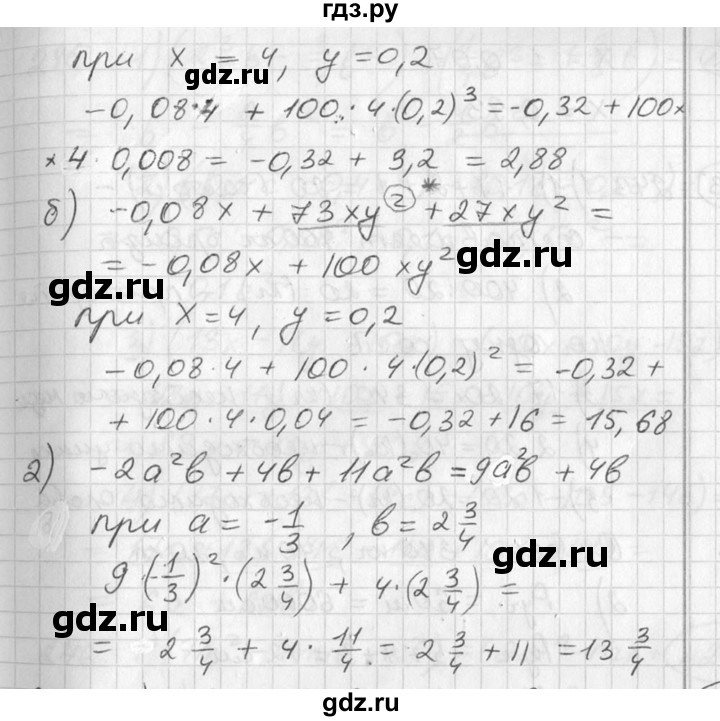 гдз.ру
при x = 4, y = 0,2
gdz.ru
-0,08·4 + 100·4·(0,2)³ = -0,32 + 100×
×4·0,008 = -0,32 + 3,2 = 2,88
б) -0,08x + 73xy²* + 27xy² =
= -0,08x + 100xy²
gdz.ru
gdz.ru
при x = 4, y = 0,2
-0,08·4 + 100·4·(0,2)² = -0,32 +
+ 100·4·0,04 = -0,32 + 16 = 15,68
2) -2a²b + 4b + 11a²b = 9a²b + 4b
при a = -1/3, b = 2 3/4
gdz.ru
9·(-1/3)²·(2 3/4) + 4·(2 3/4) =
gdz.ru
= 2 3/4 + 4·11/4 = 2 3/4 + 11 = 13 3/4
gdz.ru
gdz.ru